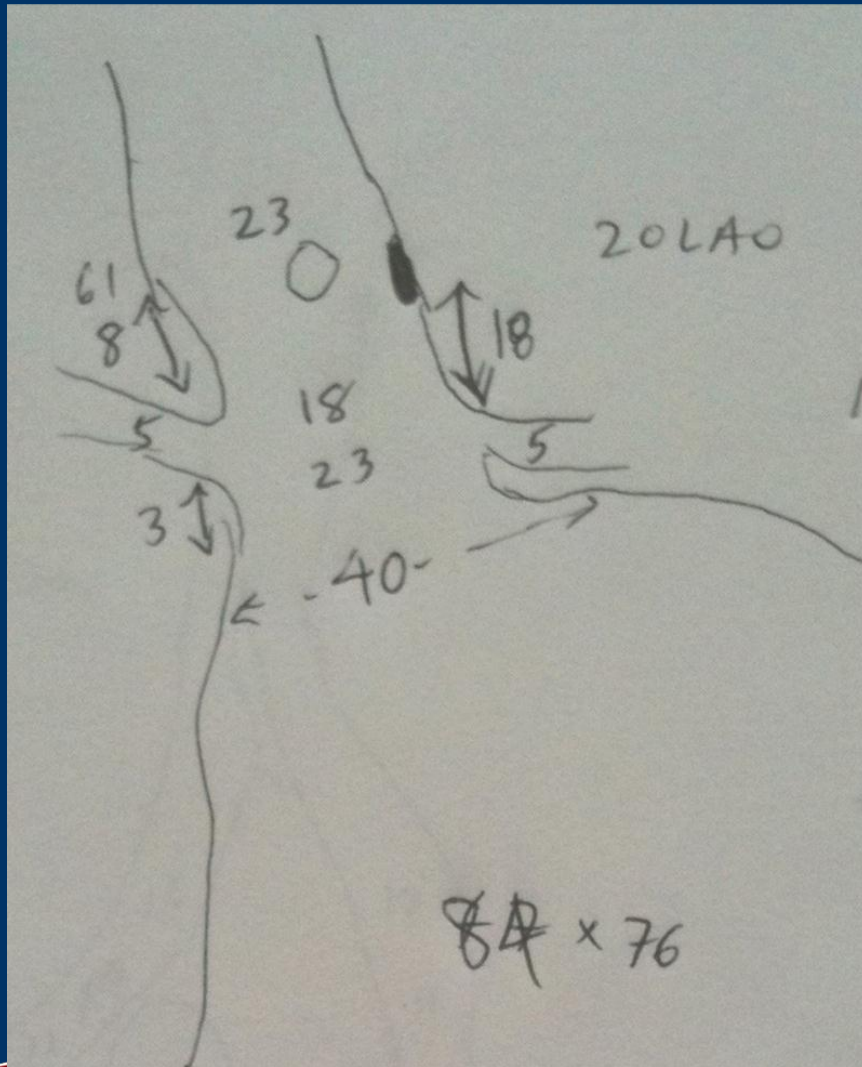 23
20LAO
61
8
18
18
5
5
23
3
-40-
x 76